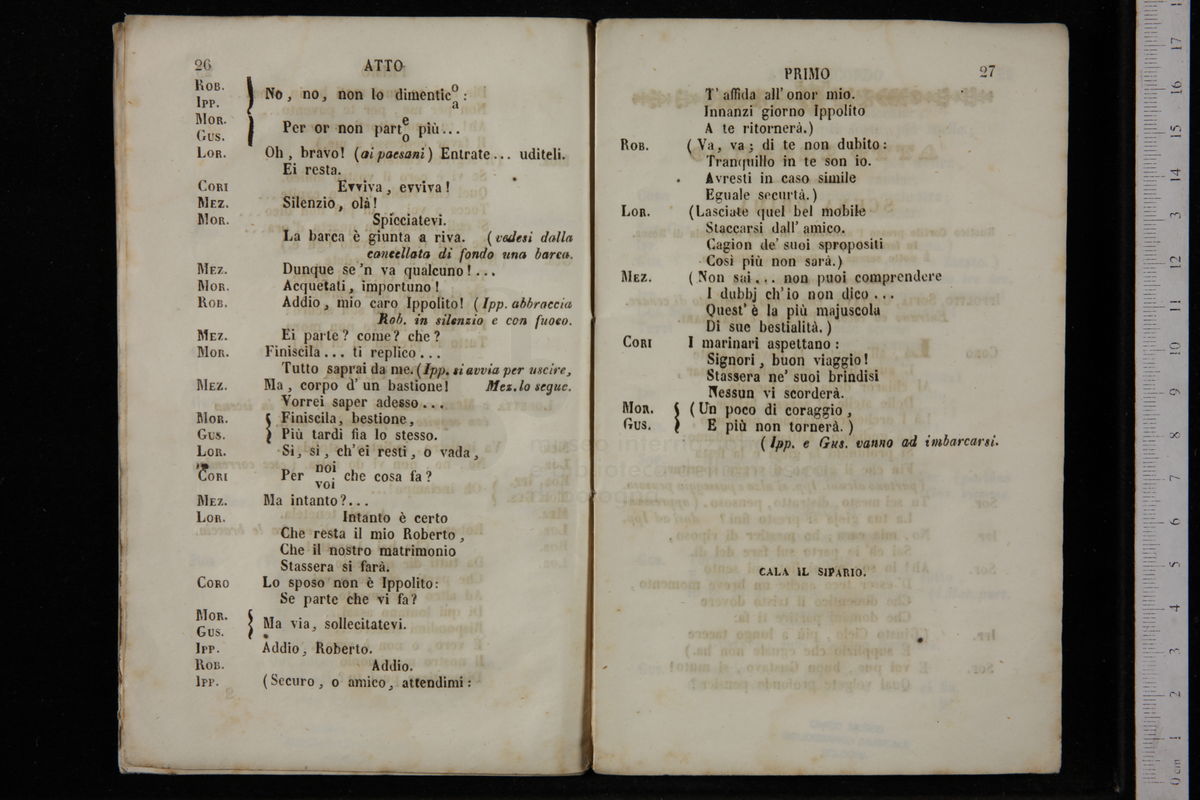 26 ATTO
ROB.
IPP.
MOR.
GUS.
No, no, non lo dimentic o a :
Per or non part e o più...
LOR. Oh, bravo! (ai paesani) Entrate... uditeli.
Ei resta.
CORI Evviva, evviva!
MEZ. Silenzio, olà!
MOR. Spicciatevi.
La barca è giunta a riva. (vedesi dalla
cancellata di fondo una barca.
MEZ. Dunque se 'n va qualcuno!...
MOR. Acquetati, importuno!
ROB. Addio, mio caro Ippolito! (Ipp. abbraccia
Rob. in silenzio e con fuoco.
MEZ. Ei parte? come? che?
MOR. Finiscila... ti replico...
Tutto saprai da me. (Ipp. si avvia per uscire,
MEZ. Ma, corpo d' un bastione! Mez. lo segue.
Vorrei saper adesso...
MOR. Finiscila, bestione,
GUS. Più tardi fia lo stesso.
LOR. Si, si, ch' ei resti, o vada,
CORI Per noi voi che cosa fa?
MEZ. Ma intanto?...
LOR. Intanto è certo
Che resta il mio Roberto,
Che il nostro matrimonio
Stassera si farà.
CORO Lo sposo non è Ippolito:
Se parte che vi fa?
MOR.
GUS.
Ma via, sollecitatevi.
IPP. Addio, Roberto.
ROB. Addio.
IPP. (Securo, o amico, attendimi:
PRIMO 27
T' affida all' onor mio.
Innanzi giorno Ippolito
A te ritornerà.)
ROB. (Va, va; di te non dubito:
Tranquillo in te son io.
Avresti in caso simile
Eguale securtà.)
LOR. (Lasciate quel bel mobile
Staccarsi dall' amico.
Cagion de' suoi spropositi
Così più non sarà.)
MEZ. (Non sai... non puoi comprendere
I dubbj ch' io non dico...
Quest' è la più majuscola
Di sue bestialità.)
CORI I marinari aspettano:
Signori, buon viaggio!
Stassera ne' suoi brindisi
Nessun vi scorderà.
MOR. (Un poco di coraggio,
GUS. E più non tornerà.)
(Ipp. e Gus. vanno ad imbarcarsi.
CALA IL SIPARIO.